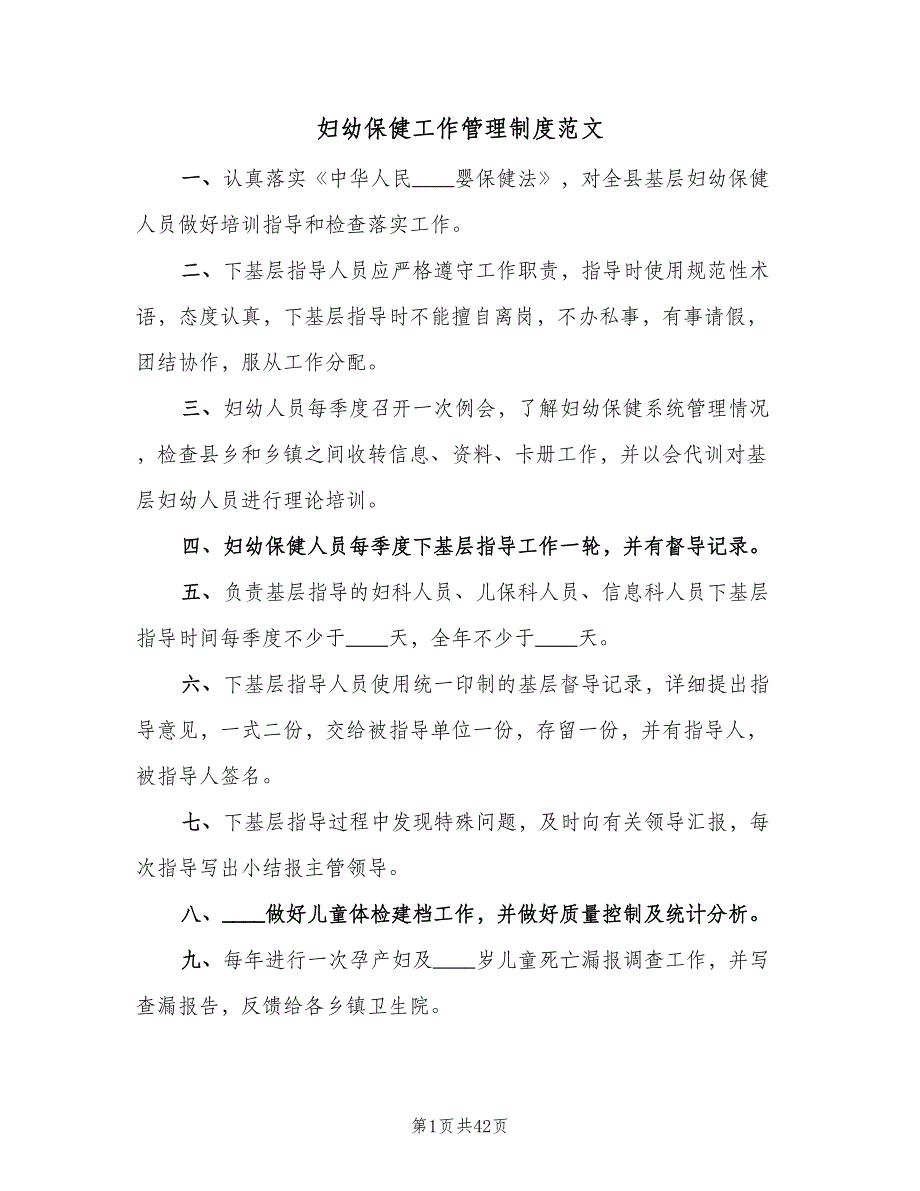 妇幼保健工作管理制度范文
一、认真落实《中华人民____婴保健法》，对全县基层妇幼保健
人员做好培训指导和检查落实工作。
二、下基层指导人员应严格遵守工作职责，指导时使用规范性术
语，态度认真，下基层指导时不能擅自离岗，不办私事，有事请假，
团结协作，服从工作分配。
三、妇幼人员每季度召开一次例会，了解妇幼保健系统管理情况
，检查县乡和乡镇之间收转信息、资料、卡册工作，并以会代训对基
层妇幼人员进行理论培训。
四、妇幼保健人员每季度下基层指导工作一轮，并有督导记录。
五、负责基层指导的妇科人员、儿保科人员、信息科人员下基层
指导时间每季度不少于____天，全年不少于____天。
六、下基层指导人员使用统一印制的基层督导记录，详细提出指
导意见，一式二份，交给被指导单位一份，存留一份，并有指导人，
被指导人签名。
七、下基层指导过程中发现特殊问题，及时向有关领导汇报，每
次指导写出小结报主管领导。
八、____做好儿童体检建档工作，并做好质量控制及统计分析。
九、每年进行一次孕产妇及____岁儿童死亡漏报调查工作，并写
查漏报告，反馈给各乡镇卫生院。
第1页共42页